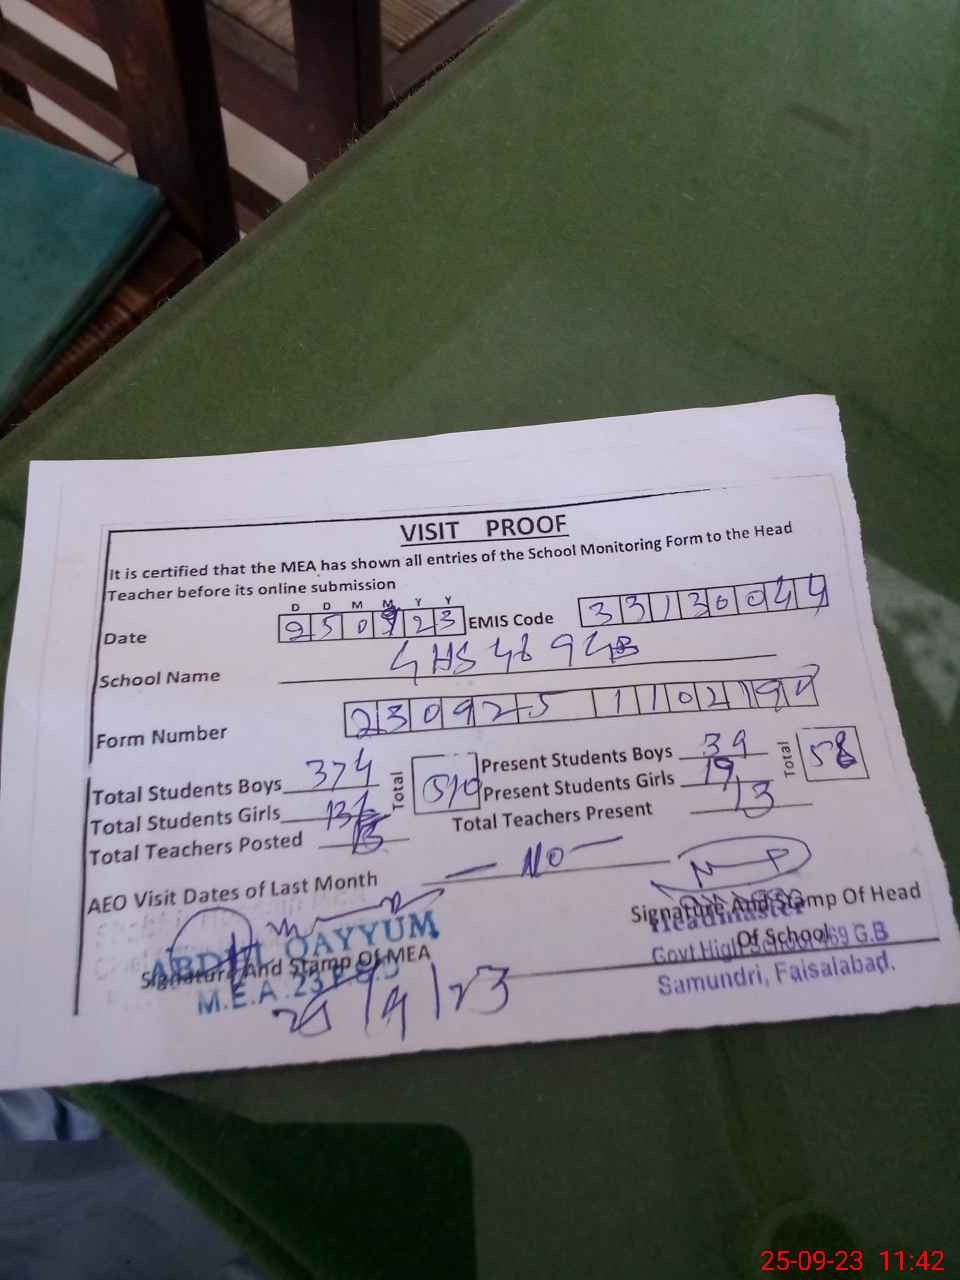 VISIT PROOF
It is certified that the MEA has shown all entries of the School Monitoring Form to the Head
Teacher before its online submission
D D M M Y Y
Date 250923 EMIS Code 33130044
School Name GHS 469 GB
Form Number 230925 110219
Total Students Boys 374 Total 510 Present Students Boys 39 Total 58
Total Students Girls Present Students Girls 19
Total Teachers Posted 13 Total Teachers Present 13
AEO Visit Dates of Last Month — No —
Signature And Stamp Of MEA
ABDUL QAYYUM
M.E.A. 23
25/9/23
Signature And Stamp Of Head
Of School
Headmaster
Govt High School 469 G.B
Samundri, Faisalabad.
25-09-23 11:42